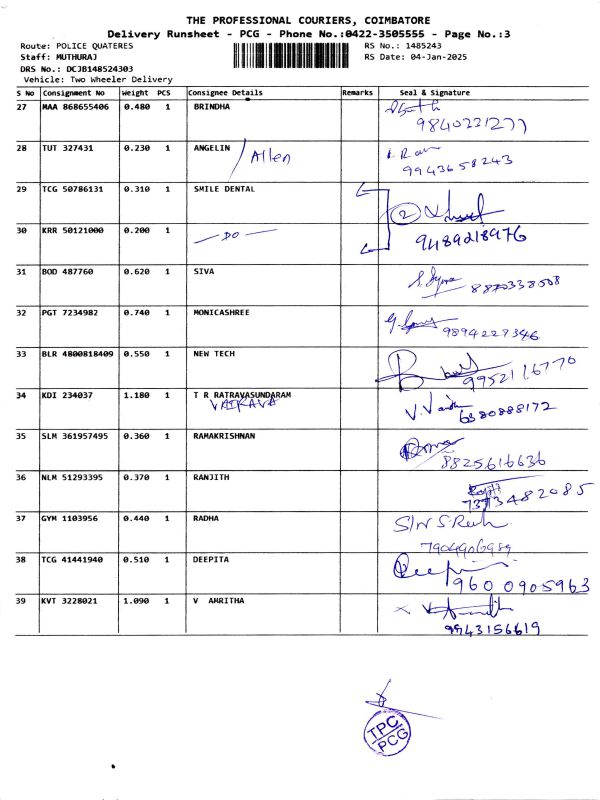 THE PROFESSIONAL COURIERS, COIMBATORE
Delivery Runsheet - PCG - Phone No.:0422-3505555 - Page No.:3
Route: POLICE QUATERES RS No.: 1485243
Staff: MUTHURAJ RS Date: 04-Jan-2025
DRS No.: DCJB148524303
Vehicle: Two Wheeler Delivery
S No Consignment No Weight PCS Consignee Details Remarks Seal & Signature
27 MAA 868655406 0.480 1 BRINDHA
9840231277
28 TUT 327431 0.230 1 ANGELIN / Allen
9943658243
29 TCG 50786131 0.310 1 SMILE DENTAL
2
30 KRR 50121000 0.200 1 — DO — 9489218976
31 BOD 487760 0.620 1 SIVA
8870338508
32 PGT 7234982 0.740 1 MONICASHREE
9894227346
33 BLR 4800818409 0.550 1 NEW TECH
9952116770
34 KDI 234037 1.180 1 T R RATRAVASUNDARAM
6380888172
35 SLM 361957495 0.360 1 RAMAKRISHNAN
8825616636
36 NLM 51293395 0.370 1 RANJITH
7373482085
37 GYM 1103956 0.440 1 RADHA
38 TCG 41441940 0.510 1 DEEPITA Deepi
9600905963
39 KVT 3228021 1.090 1 V AMRITHA
9943156619
TPC
PCG